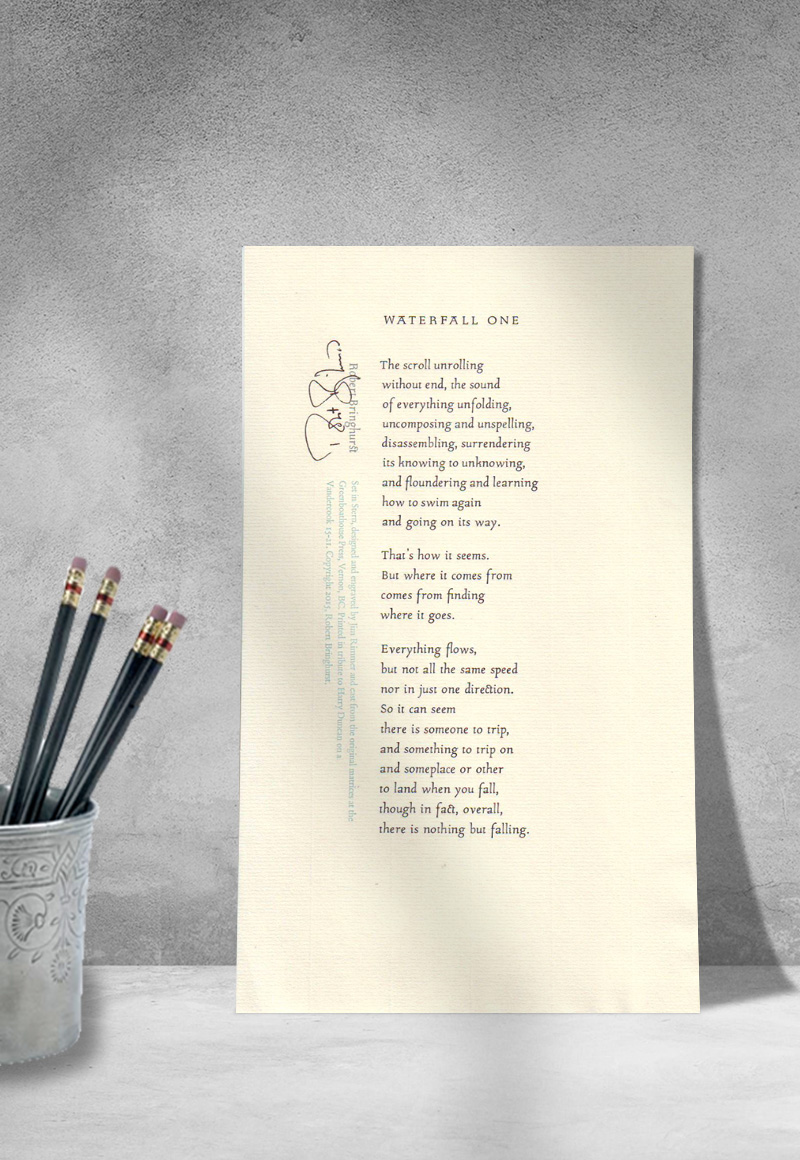 WATERFALL ONE
The scroll unrolling
without end, the sound
of everything unfolding,
uncomposing and unspelling,
disassembling, surrendering
its knowing to unknowing,
and floundering and learning
how to swim again
and going on its way.
That's how it seems.
But where it comes from
comes from finding
where it goes.
Everything flows,
but not all the same speed
nor in just one direction.
So it can seem
there is someone to trip,
and something to trip on
and someplace or other
to land when you fall,
though in fact, overall,
there is nothing but falling.
Robert Bringhurst
Set in Stern, designed and engraved by Jim Rimmer and cast from the original matrices at the
Greenboathouse Press, Vernon, BC. Printed in tribute to Harry Duncan on a
Vandercook 15-21. Copyright 2015, Robert Bringhurst.